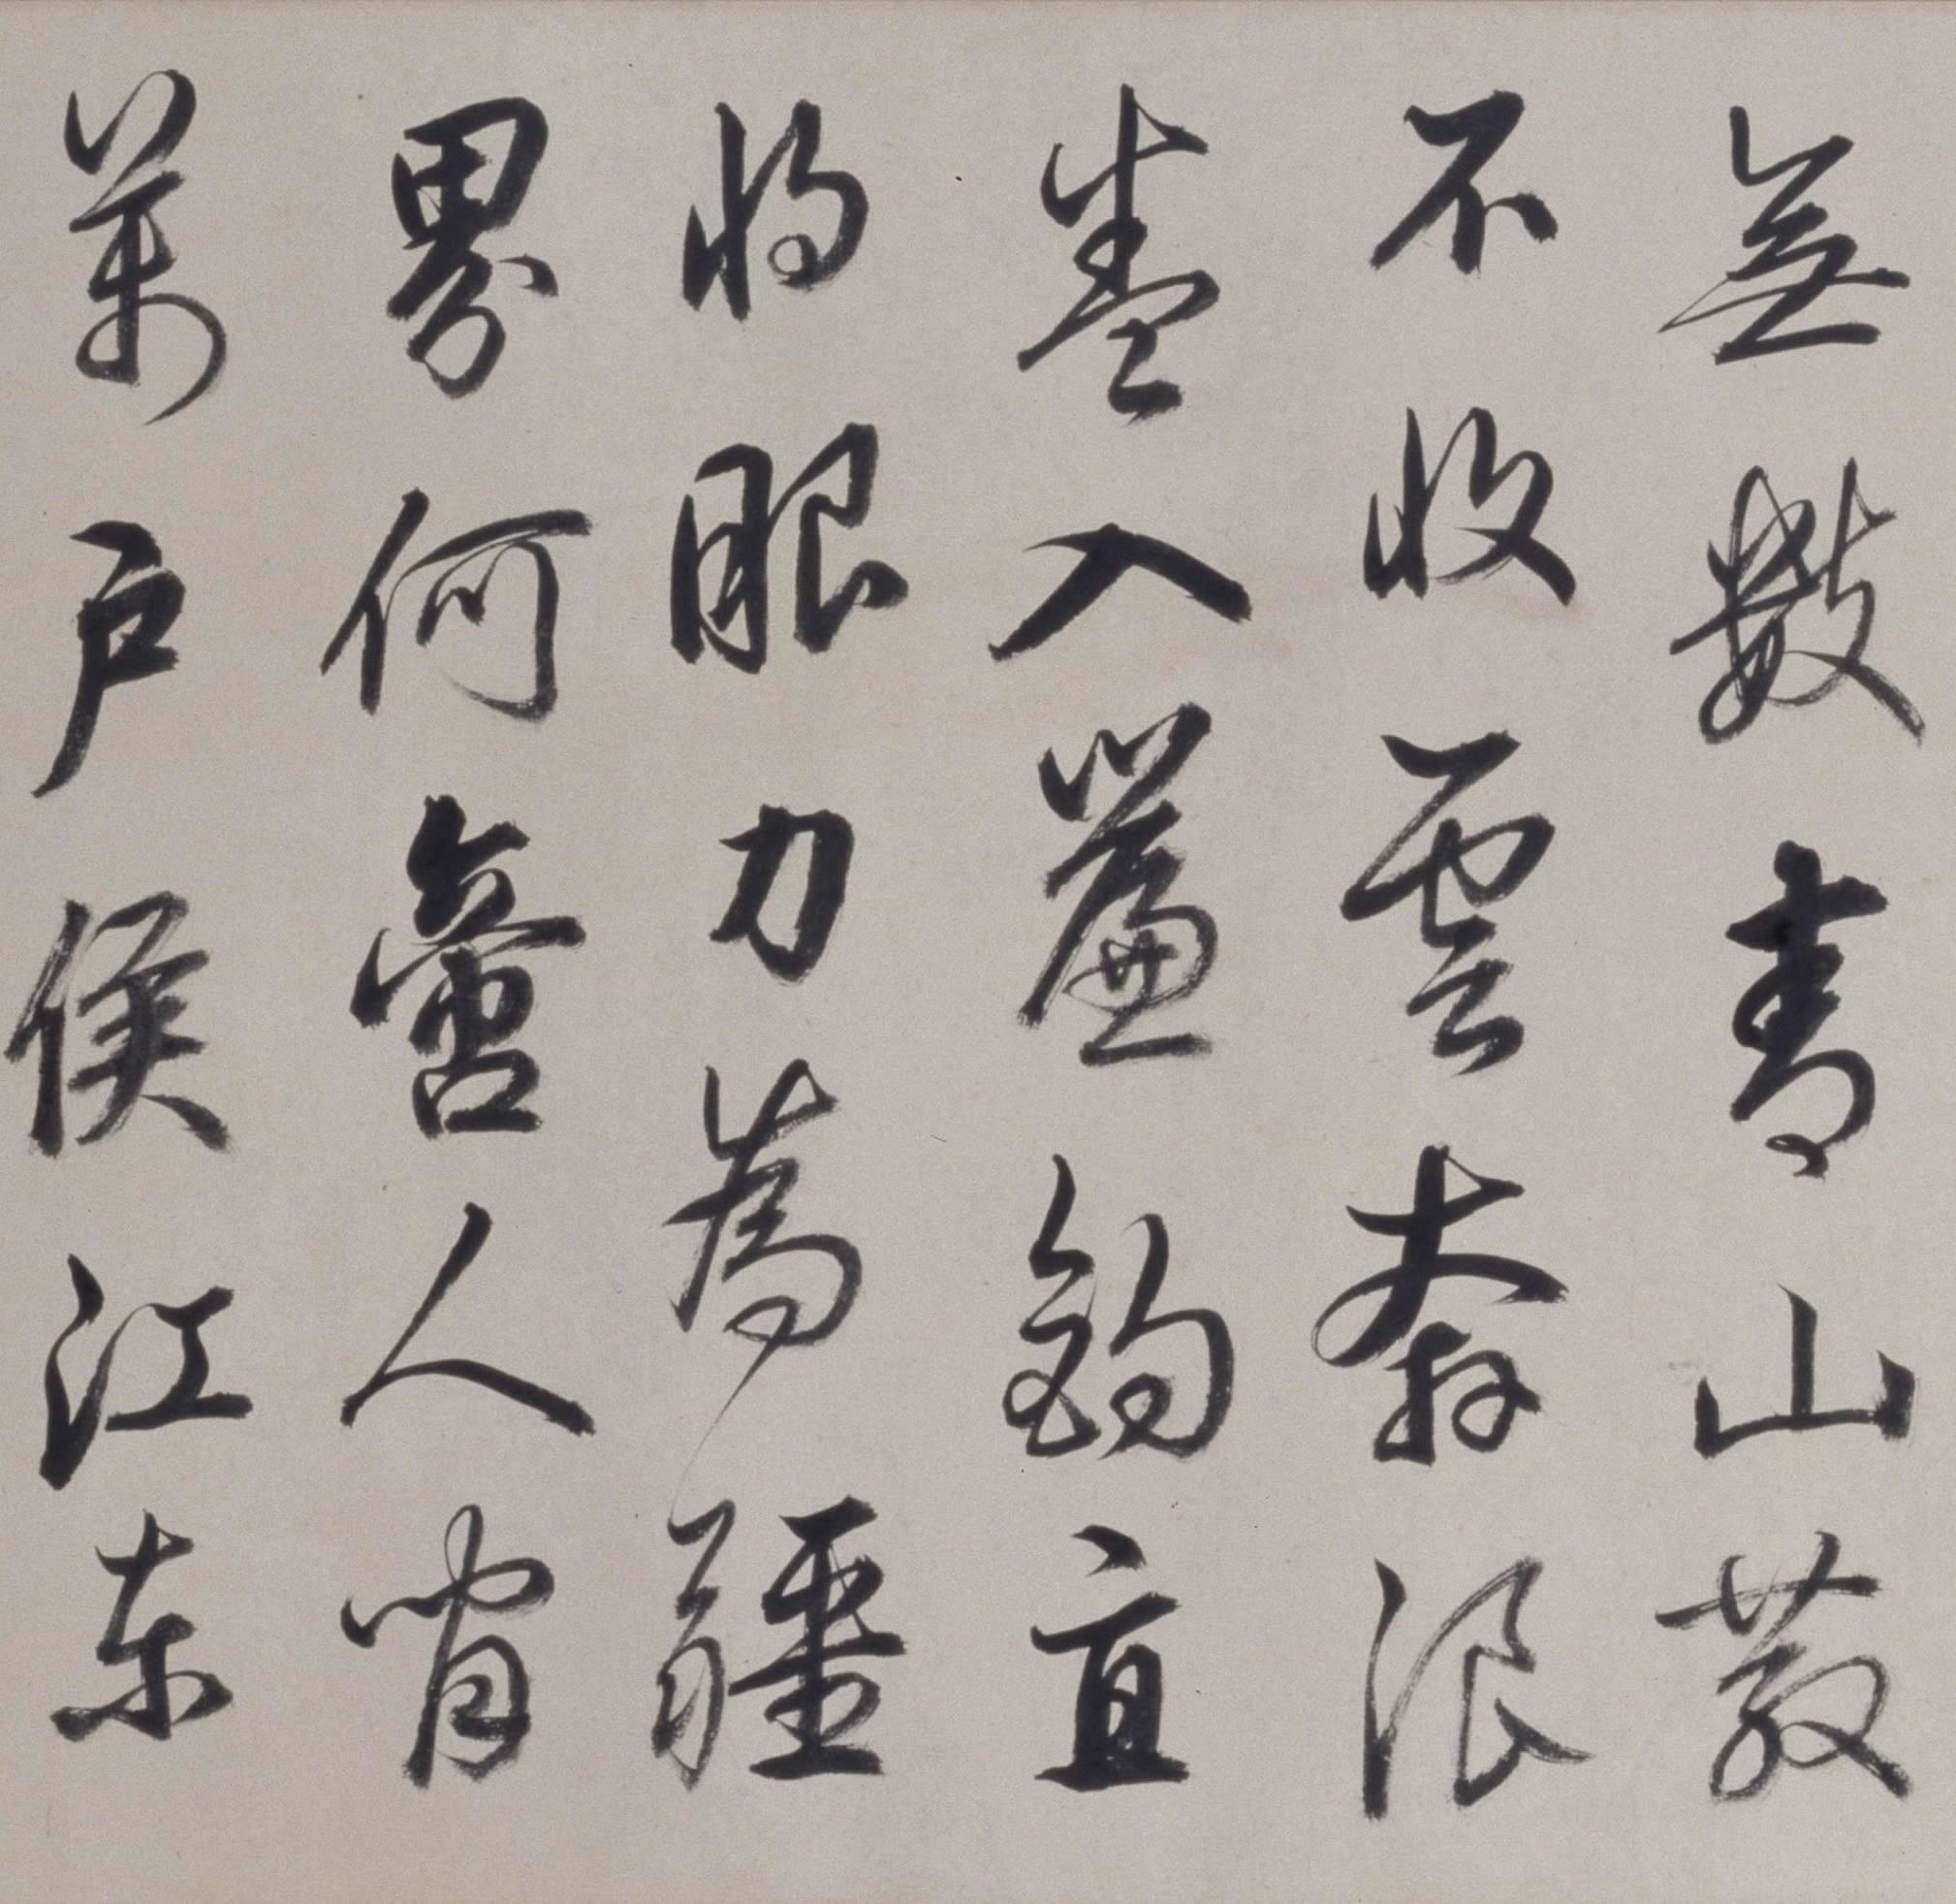 無數青山散
不收雲奔浪
卷入簾鉤直
將眼力為疆
界何啻人閒
萬戶侯江東